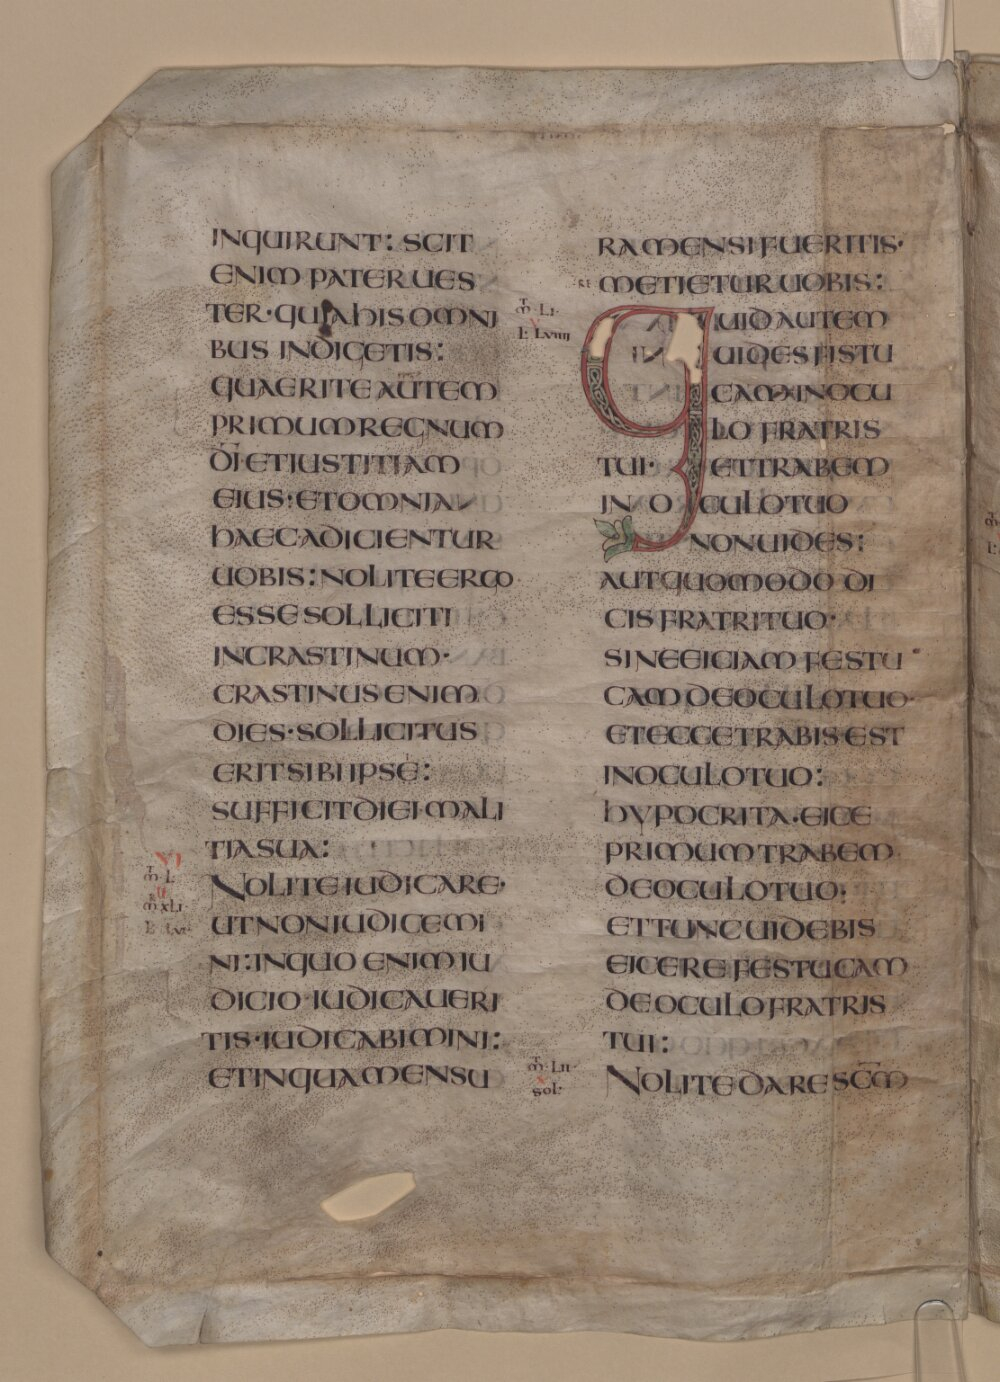 INQUIRUNT: SCIT
ENIM PATER UES
TER· QUIA HIS OMNI
BUS INDIGETIS:
QUAERITE AUTEM
PRIMUM REGNUM
D̅I̅ ET IUSTITIAM
EIUS· ET OMNIA
HAEC ADICIENTUR
UOBIS: NOLITE ERGO
ESSE SOLLICITI
IN CRASTINUM·
CRASTINUS ENIM
DIES· SOLLICITUS
ERIT SIBI IPSE:
SUFFICIT DIEI MALI
TIA SUA:
VI
M̅· L·
NOLITE IUDICARE·
M̅ XLI·
L· LVI·
UT NON IUDICEMI
NI: IN QUO ENIM IU
DICIO IUDICAUERI
TIS· IUDICABIMINI:
ET IN QUA MENSU
RA MENSI FUERITIS·
METIETUR UOBIS:
M̅· LI·
V
L· LVIIII
QUID AUTEM
UIDES FISTU
CAM IN OCU
LO FRATRIS
TUI· ET TRABEM
IN OCULO TUO
NON UIDES:
AUT QUOMODO DI
CIS FRATRI TUO·
SINE EICIAM FESTU
CAM DE OCULO TUO·
ET ECCE TRABIS EST
IN OCULO TUO:
HYPOCRITA· EICE
PRIMUM TRABEM
DE OCULO TUO:
ET TUNC UIDEBIS
EICERE FESTUCAM
DE OCULO FRATRIS
TUI:
M̅· LII·
X
SOL:
NOLITE DARE SC̅M̅